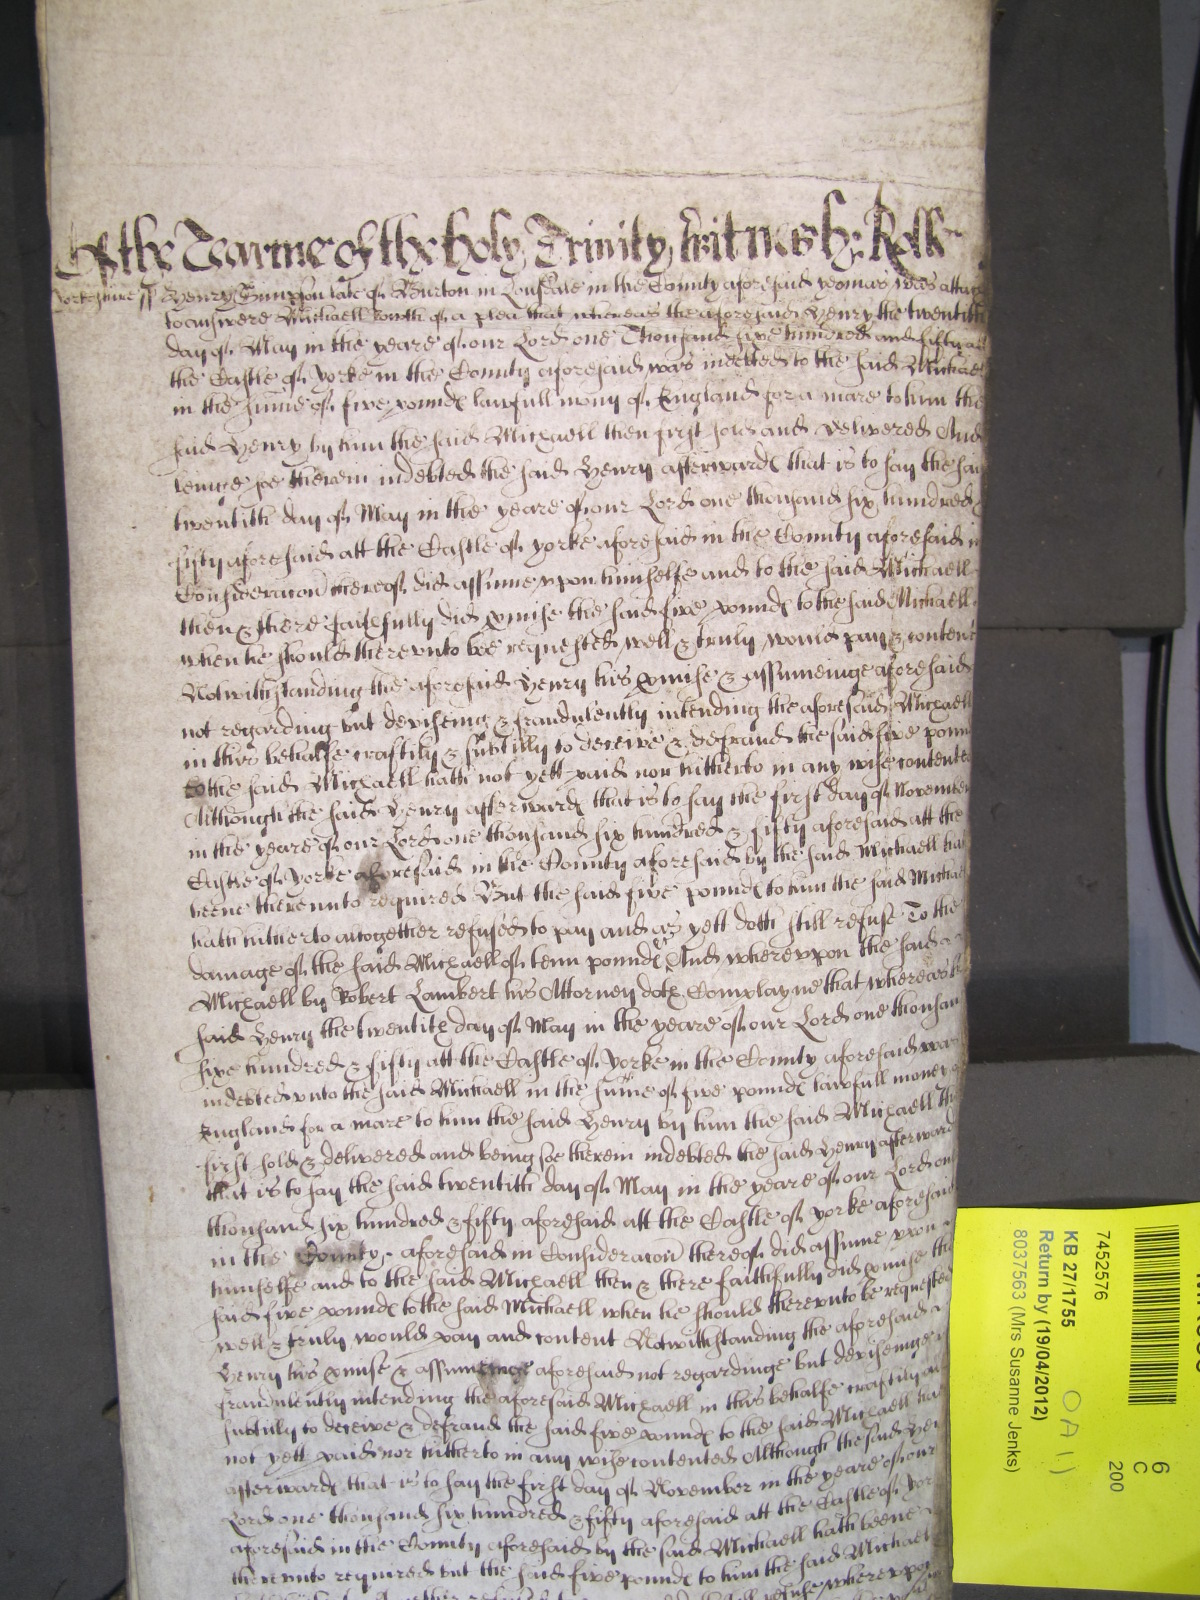 Of the Tearme of the holy Trinity witnes h: Rolle
Yorkeshire ss Henry Simpson late of Burton in Lonsdale in the County aforesaid yeoman was attac
to answere Michaell of a plea that whereas the aforesaid Henry the twentith
day of May in the yeare of our Lord one Thousand six hundred and fifty att
the Castle of Yorke in the County aforesaid was indebted to the said Michaell
in the summe of five pounds lawfull mony of England for a mare to him the
said Henry by him the said Michaell then first sold and delivered And
beinge soe therein indebted the said Henry afterwards that is to say the said
twentith day of May in the yeare of our Lord one thousand six hundred
fifty aforesaid att the Castle of yorke aforesaid in the County aforesaid in
Consideracon thereof did assume upon himselfe and to the said Michaell
then & there faithfully did pmise the said five pounds to the said Michaell
when he should therevnto bee requested well & truly would pay & content
Notwithstanding the aforesaid Henry his pmise & assumeinge aforesaid
not regarding but deviseing & fraudulently intending the aforesaid Michaell
in this behalfe craftily & subtilly to deceive & defraud the said five pound
to the said Michaell hath not yett paid nor hitherto in any wise contented
Although the said Henry afterwards that is to say the first day of November
in the yeare of our Lord one thousand six hundred & fifty aforesaid att the
Castle of Yorke aforesaid in the County aforesaid by the said Michaell ha
beene therevnto required But the said five pounds to him the said Michae
hath hitherto altogether refused to pay and as yett doth still refuse To the
damage of the said Michaell of tenn pounds And wherevpon the said
Michaell by Robert Lambert his Attorney doth Complayne that whereas the
said Henry the twentith day of May in the yeare of our Lord one thousan
sixe hundred & fifty att the Castle of Yorke in the County aforesaid was
indebted vnto the said Michaell in the sume of five pounds lawfull money of
England for a mare to him the said Henry by him the said Michaell the
first sold & delivered and being soe therein indebted the said Henry afterward
that is to say the said twentith day of May in the yeare of our Lord one
thousand six hundred & fifty aforesaid att the Castle of yorke aforesaid
in the County aforesaid in Consideracon thereof did assume vpon
himselfe and to the said Michaell then & there faithfully did pmise the
said five pounds to the said Michaell when he should therevnto be requested
well & truly would pay and content Notwithstanding the aforesaid
Henry his pmise & assumeinge aforesaid not regardinge but deviseinge
fraudulently intending the aforesaid Michaell in this behalfe craftily and
subtilly to deceive & defraud the said five pounds to the said Michaell hat
not yett paid nor hitherto in any wise contented Although the said Hen
afterwards that is to say the first day of November in the yeare of our
Lord one thousand six hundred & fifty aforesaid att the Castle of Yor
aforesaid in the County aforesaid by the said Michaell hath beene
therevnto required but the said five pounds to him the said Michael
refuse wherevpon
6
C
200
7452576
KB 27/1755
OA (1)
Return by (19/04/2012)
8037563 (Mrs Susanne Jenks)